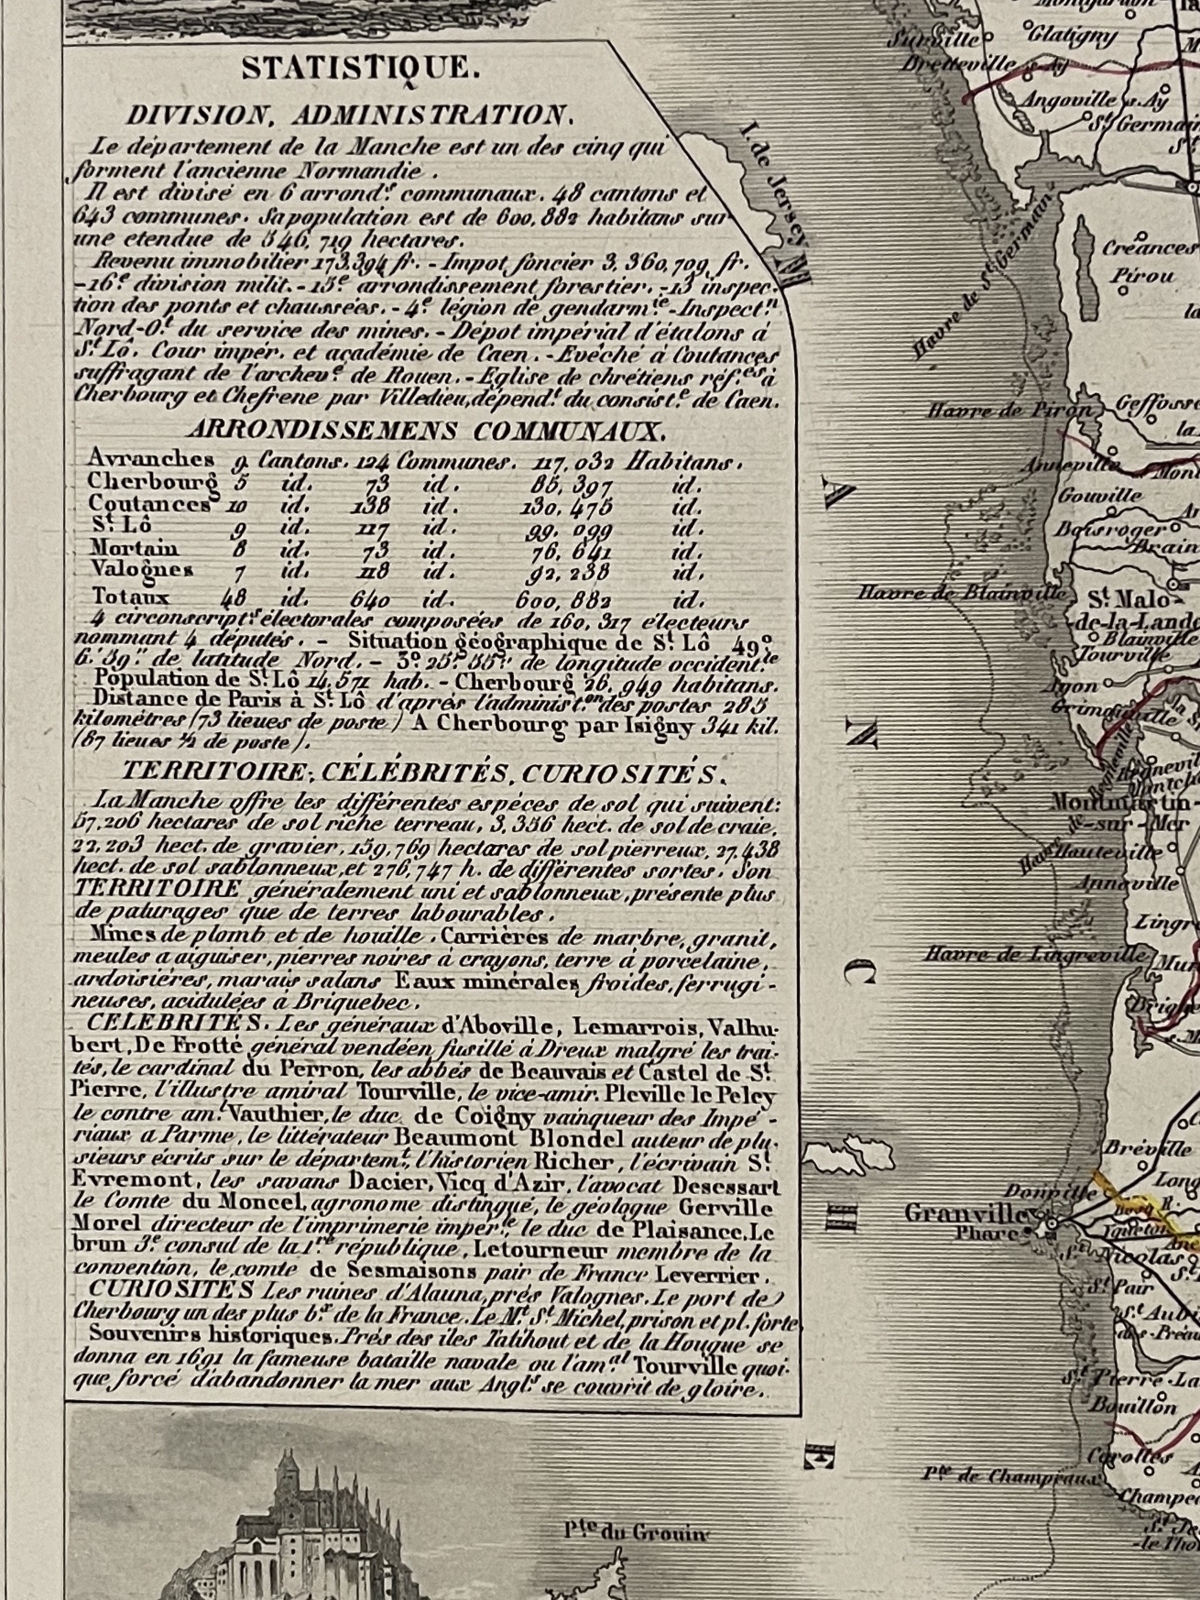 STATISTIQUE.
DIVISION, ADMINISTRATION.
Le département de la Manche est un des cinq qui
forment l'ancienne Normandie.
Il est divisé en 6 arrond.ˢ communaux. 48 cantons et
643 communes. Sa population est de 600,882 habitans sur
une etendue de 546,719 hectares.
Revenu immobilier 173,394 fr. - Impot foncier 3,360,709 fr.
-16.ᵉ division milit. - 15.ᵉ arrondissement forestier. -13 inspec-
tion des ponts et chaussées. - 4.ᵉ légion de gendarm.ⁱᵉ - Inspect.ⁿ
Nord-O.ᵗ du service des mines. - Dépot impérial d'étalons à
S.ᵗ Lô. Cour impér. et académie de Caen. - Evêché à Coutances
suffragant de l'archev.ᵉ de Rouen. - Eglise de chrétiens réf.ᵉˢ à
Cherbourg et Chefrene par Villedieu, dépend.ᵗ du consist.ᵉ de Caen.
ARRONDISSEMENS COMMUNAUX.
Avranches 9 Cantons. 124 Communes. 117,032 Habitans.
Cherbourg 5 id. 73 id. 85,397 id.
Coutances 10 id. 138 id. 130,475 id.
S.ᵗ Lô 9 id. 117 id. 99,099 id.
Mortain 8 id. 73 id. 76,641 id.
Valognes 7 id. 118 id. 92,238 id.
Totaux 48 id. 640 id. 600,882 id.
4 circonscript.ˢ électorales composées de 160,317 électeurs
nommant 4 députés. - Situation géographique de S.ᵗ Lô 49°
6.' 59." de latitude Nord. - 3° 25' 55" de longitude occident.ˡᵉ
Population de S.ᵗ Lô 14,571 hab. - Cherbourg 26,949 habitans.
Distance de Paris à S.ᵗ Lô d'après l'administ.ᵒⁿ des postes 285
kilométres (73 lieues de poste) A Cherbourg par Isigny 341 kil.
(87 lieues ½ de poste).
TERRITOIRE, CÉLÉBRITÉS, CURIOSITÉS.
La Manche offre les différentes espéces de sol qui suivent:
57,206 hectares de sol riche terreau, 3,356 hect. de sol de craie,
22,203 hect. de gravier, 159,769 hectares de sol pierreux, 27,438
hect. de sol sablonneux, et 276,747 h. de différentes sortes. Son
TERRITOIRE généralement uni et sablonneux, présente plus
de paturages que de terres labourables.
Mines de plomb et de houille. Carrières de marbre, granit,
meules a aiguiser, pierres noires à crayons, terre à porcelaine,
ardoisiéres, marais salans Eaux minérales froides, ferrugi-
neuses, acidulées à Briquebec.
CÉLÉBRITÉS. Les généraux d'Aboville, Lemarrois, Valhu-
bert, De Frotté général vendéen fusillé à Dreux malgré les trai-
tés, le cardinal du Perron, les abbés de Beauvais et Castel de S.ᵗ
Pierre, l'illustre amiral Tourville, le vice-amir. Pleville le Peley
le contre am.ˡ Vauthier, le duc de Coigny vainqueur des Impé-
riaux a Parme, le littérateur Beaumont Blondel auteur de plu-
sieurs écrits sur le départem.ᵗ, l'historien Richer, l'écrivain S.ᵗ
Evremont, les savans Dacier, Vicq d'Azir, l'avocat Desessart
le Comte du Moncel, agronome distingué, le géologue Gerville
Morel directeur de l'imprimerie impér.ˡᵉ, le duc de Plaisance, Le
brun 3.ᵉ consul de la 1.ʳᵉ république, Letourneur membre de la
convention, le comte de Sesmaisons pair de France Leverrier.
CURIOSITÉS Les ruines d'Alauna, prés Valognes. Le port de
Cherbourg un des plus b.ˣ de la France. Le M.ᵗ S.ᵗ Michel, prison et pl. forte
Souvenirs historiques. Prés des iles Tatihout et de la Hougue se
donna en 1691 la fameuse bataille navale ou l'am.ᵃˡ Tourville quoi-
que forcé d'abandonner la mer aux Angl.ˢ se couvrit de gloire.
Surville
Glatigny
Bretteville s. Ay
Angoville s. Ay
S.ᵗ Germain
I. de Jersey
Havre de S.ᵗ Germain
Créances
Pirou
Havre de Pirou
Geffosse
Anneville
Gouville
Boisroger
Brain
Havre de Blainville
S.ᵗ Malo-
-de-la-Lande
Blainville
Tourville
Agon
Montmartin-
-sur-Mer
Hauteville
Anneville
Lingr
Havre de Lingreville
M
A
N
C
H
E
Bréville
Donville
Long
Granville
Phare
S.ᵗ Nicolas
S.ᵗ Pair
S.ᵗ Aub
S.ᵗ Pierre-La
Bouillon
Carolles
P.ᵗᵉ de Champeaux
Champe
-le Tho
P.ᵗᵉ du Grouin